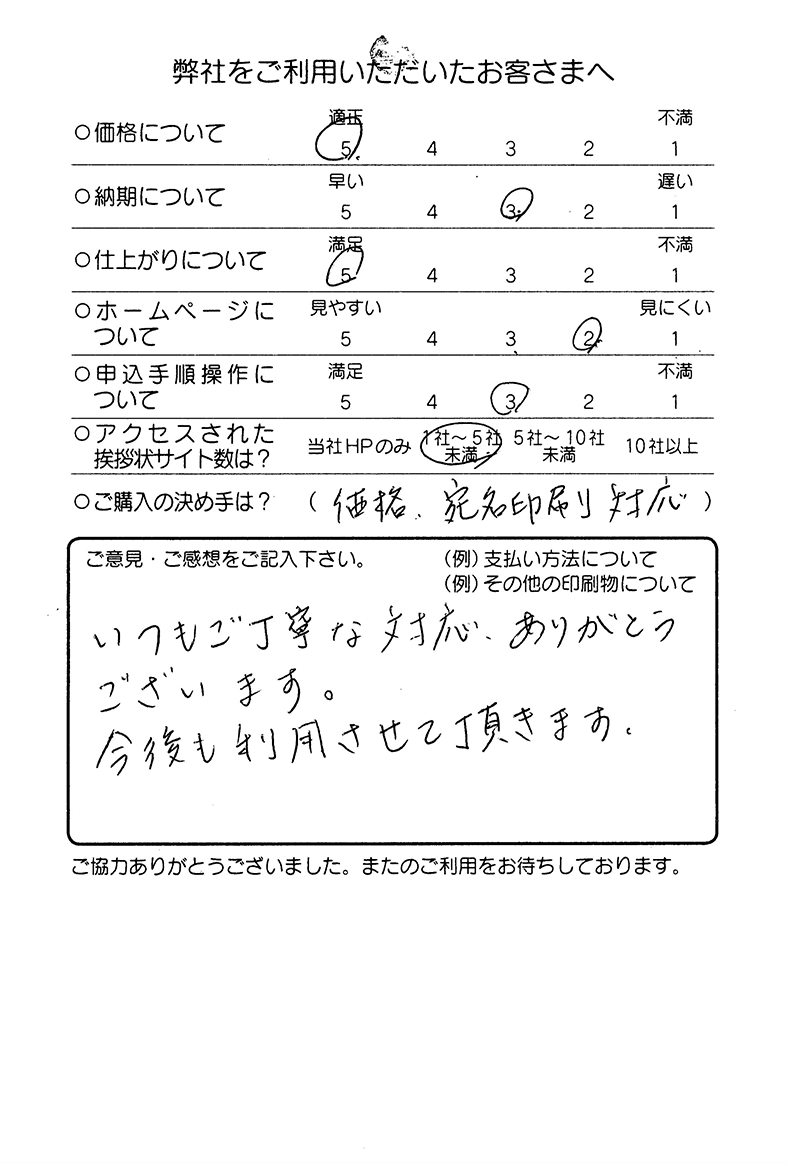 弊社をご利用いただいたお客さまへ
○価格について 適正 不満
5 4 3 2 1
○納期について 早い 遅い
5 4 3 2 1
○仕上がりについて 満足 不満
5 4 3 2 1
○ホームページに 見やすい 見にくい
ついて 5 4 3 2 1
○申込手順操作に 満足 不満
ついて 5 4 3 2 1
○アクセスされた 当社HPのみ 1社〜5社 5社〜10社 10社以上
挨拶状サイト数は? 未満 未満
○ご購入の決め手は? (価格、宛名印刷対応)
ご意見・ご感想をご記入下さい。 (例)支払い方法について
(例)その他の印刷物について
いつもご丁寧な対応、ありがとう
ございます。
今後も利用させて頂きます。
ご協力ありがとうございました。またのご利用をお待ちしております。